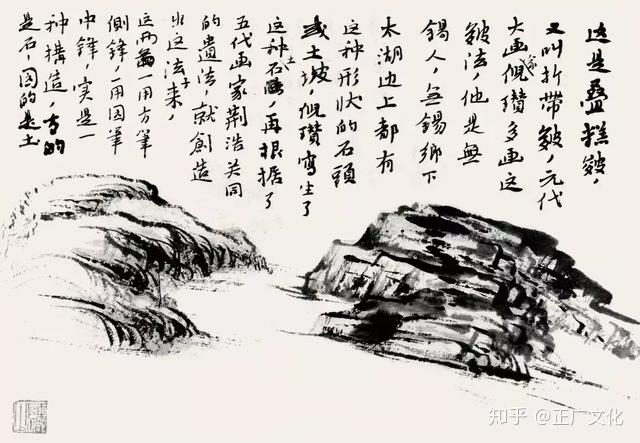 这是叠糕皴，
又叫折带皴，元代
大画家倪瓒多画这
皴法，他是無
锡人，無锡乡下
太湖边上都有
这种形状的石頭
或土坡，倪瓒写生了
这种石土，再根据了
五代画家荆浩关同
的遺法，就創造
出这法子来，
这两番一用方筆
側鋒，一用圆筆
中鋒，实是一
种構造，方的
是石，圆的是土
知乎 @正广文化